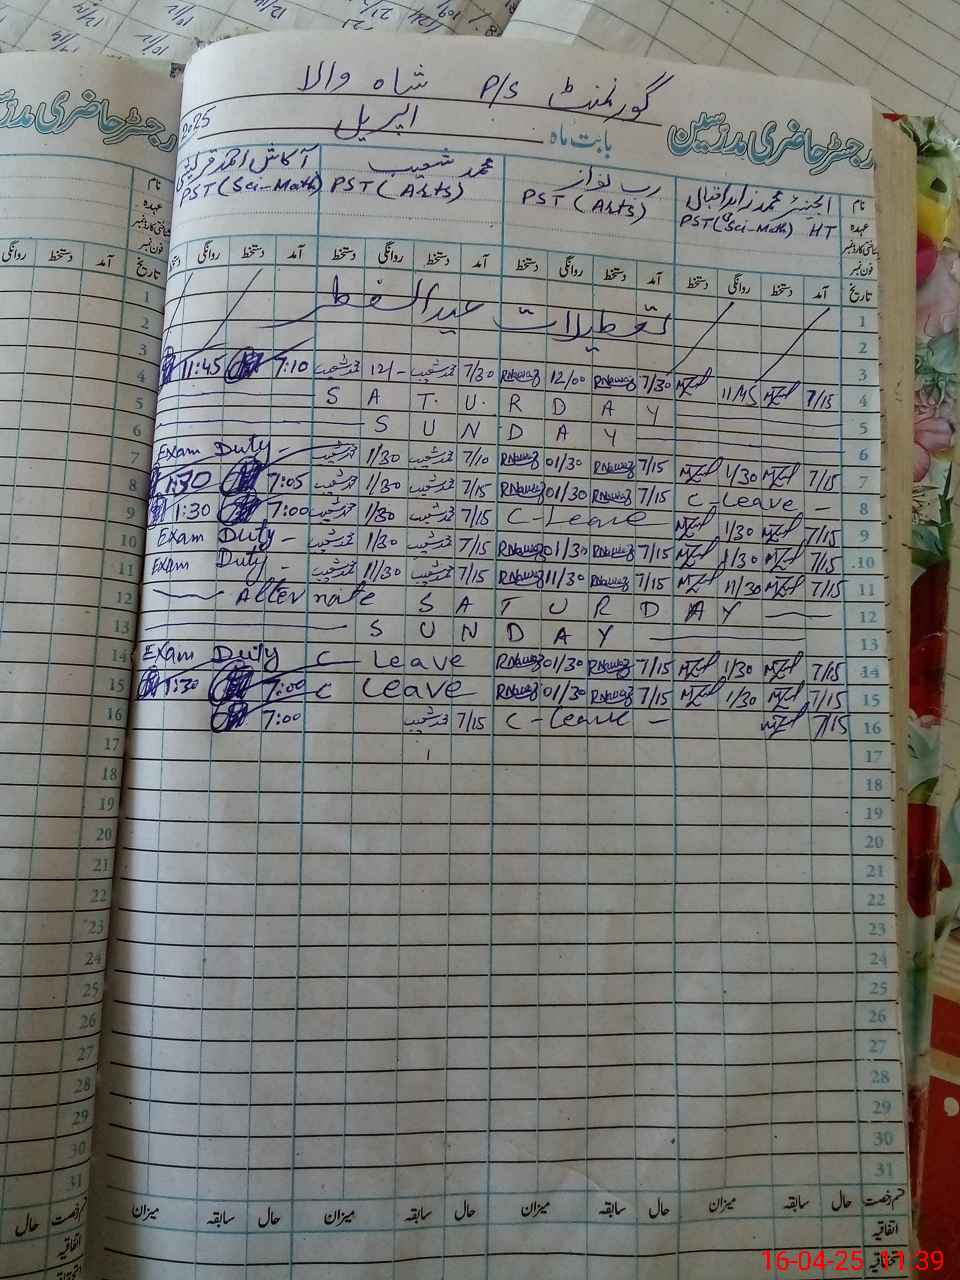 گورنمنٹ P/S شاہ والا
رجسٹر حاضری مدرسین
بابت ماہ اپریل 2025
نام
انجینئر محمد زاہد اقبال
رب نواز
محمد شعیب
آکاش احمد قریشی
عہدہ
PST (Sci-Math) HT
PST (Arts)
PST (Arts)
PST (Sci-Math)
فون نمبر
تاریخ آمد دستخط روانگی دستخط آمد دستخط روانگی دستخط آمد دستخط روانگی دستخط آمد دستخط روانگی
1 تعطیلات عید الفطر
2
3
4 7/15 11/45 7/30 RNawaz 12/00 RNawaz 7/30 محمد شعیب 12/- محمد شعیب 7:10 11:45
5 S A T U R D A Y
6 S U N D A Y
7 7/15 1/30 7/15 RNawaz 01/30 RNawaz 7/10 محمد شعیب 1/30 محمد شعیب Exam Duty -
8 C-Leave - 7/15 RNawaz 01/30 RNawaz 7/15 محمد شعیب 1/30 محمد شعیب 7:05 1:30
9 7/15 1/30 C-Leave 7/15 محمد شعیب 1/30 محمد شعیب 7:00 1:30
10 7/15 1/30 7/15 RNawaz 01/30 RNawaz 7/15 محمد شعیب 1/30 محمد شعیب Exam Duty -
11 7/15 11/30 7/15 RNawaz 11/30 RNawaz 7/15 محمد شعیب 11/30 محمد شعیب Exam Duty -
12 Alternate S A T U R D A Y
13 S U N D A Y
14 7/15 1/30 7/15 RNawaz 01/30 RNawaz C Leave Exam Duty
15 7/15 1/30 7/15 RNawaz 01/30 RNawaz C Leave 7:00 1:30
16 7/15 C-Leave - 7/15 محمد شعیب 7:00
17
18
19
20
21
22
23
24
25
26
27
28
29
30
31
قسم رخصت حال سابقہ میزان حال سابقہ میزان حال سابقہ میزان حال سابقہ میزان
اتفاقیہ
استحقاقیہ
16-04-25 11:39